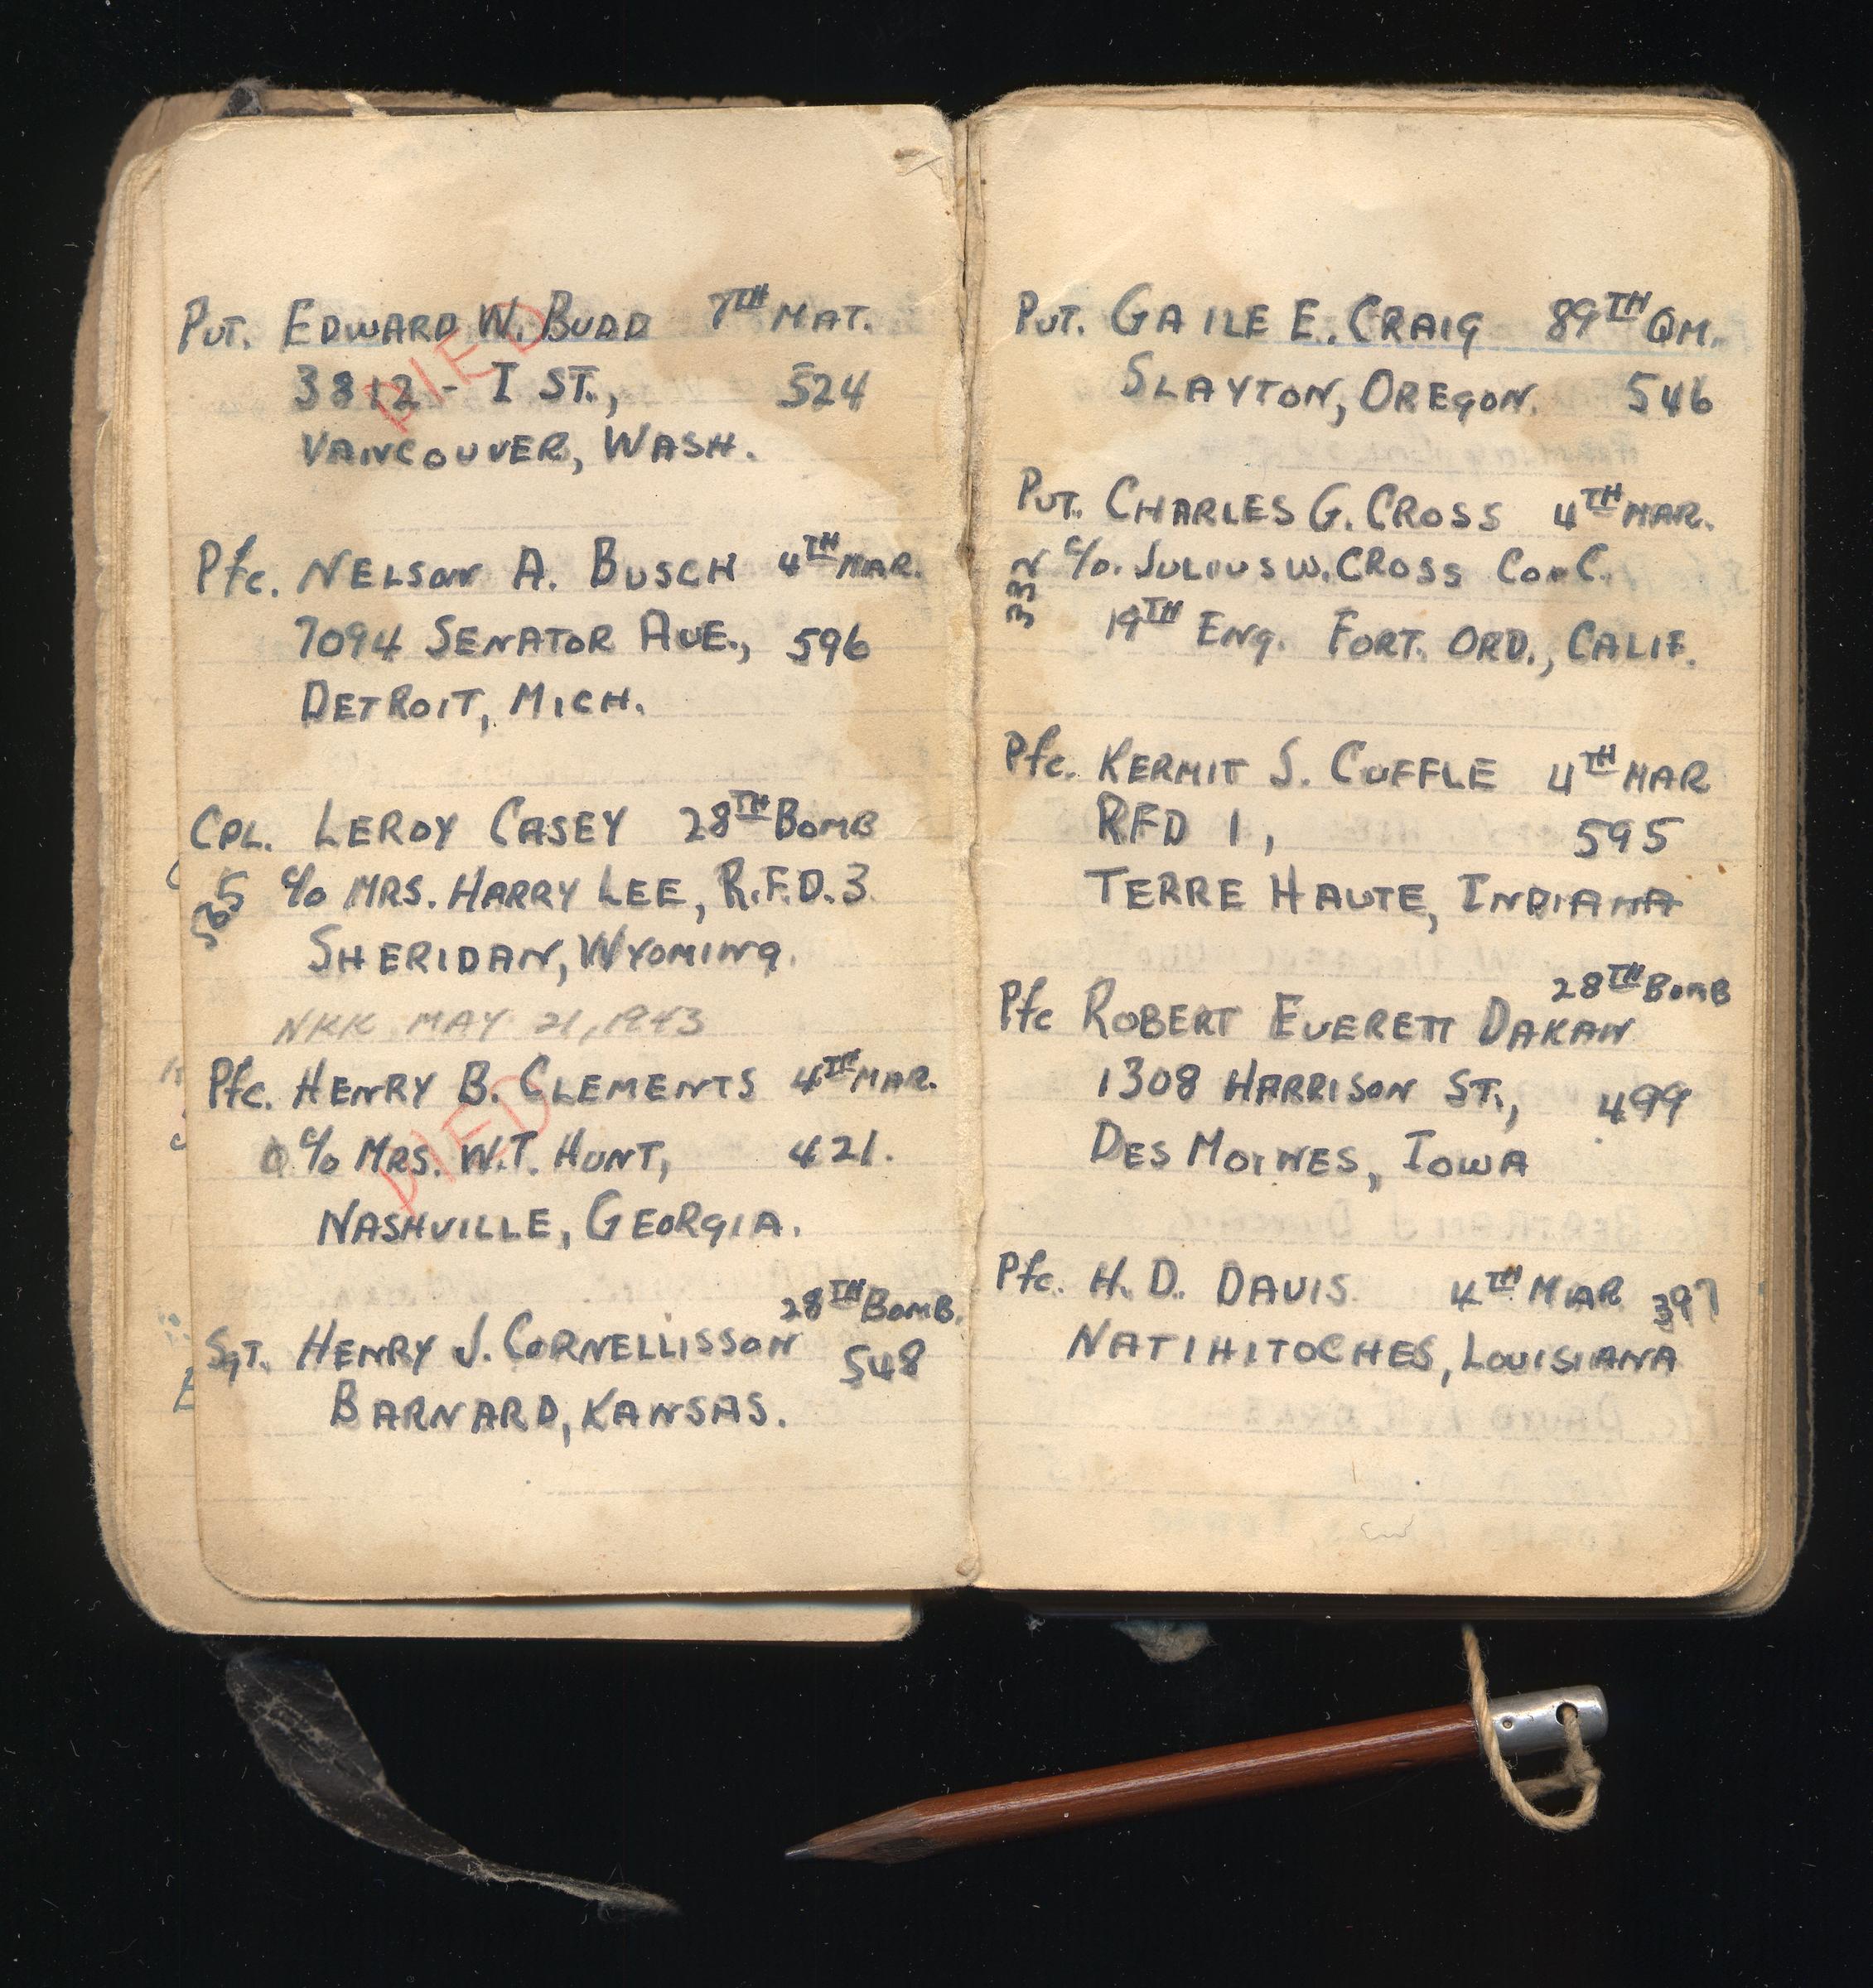 Pvt. EDWARD W. BUDD 7TH MAT.
DIED
3812 - I ST., 524
VANCOUVER, WASH.
Pfc. NELSON A. BUSCH 4TH MAR.
7094 SENATOR AVE., 596
DETROIT, MICH.
CPL. LEROY CASEY 28TH BOMB
565 c/o MRS. HARRY LEE, R.F.D. 3
SHERIDAN, WYOMING.
NKK MAY 21, 1943
Pfc. HENRY B. CLEMENTS 4TH MAR.
DIED
c/o MRS. W.T. HUNT, 421.
NASHVILLE, GEORGIA.
28TH BOMB.
SGT. HENRY J. CORNELLISSON 548
BARNARD, KANSAS.
Pvt. GAILE E. CRAIG 89TH QM.
SLAYTON, OREGON. 546
Pvt. CHARLES G. CROSS 4TH MAR.
c/o. JULIUS W. CROSS Co. C.
19TH ENG. FORT. ORD., CALIF.
Pfc. KERMIT S. CUFFLE 4TH MAR
RFD 1, 595
TERRE HAUTE, INDIANA
28TH BOMB
Pfc ROBERT EVERETT DAKAN
1308 HARRISON ST., 499
DES MOINES, IOWA
Pfc. H. D. DAVIS 4TH MAR 397
NATIHITOCHES, LOUISIANA